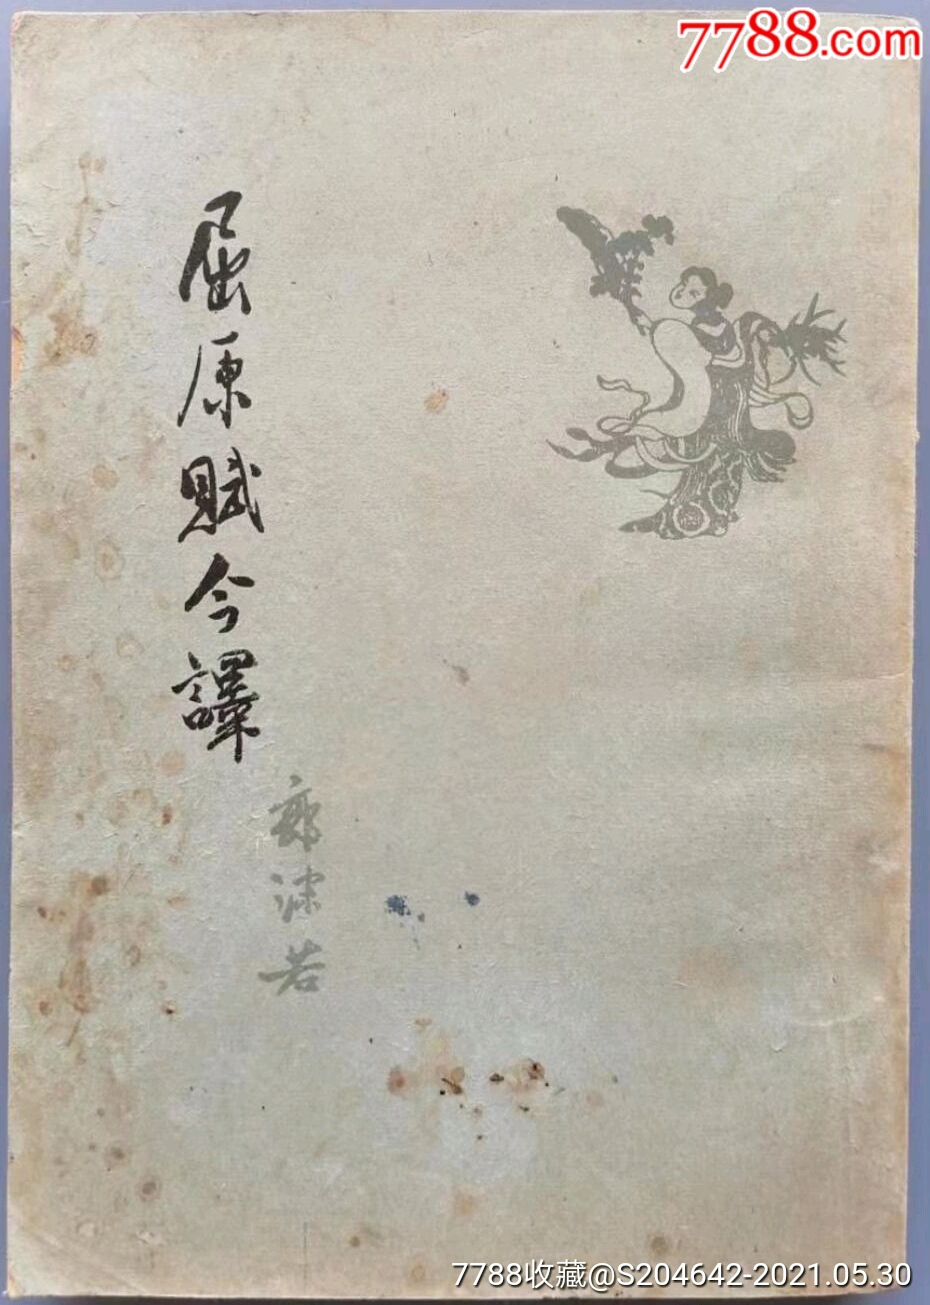 7788.com
屈原賦今譯
郭沫若
7788收藏@S204642-2021.05.30